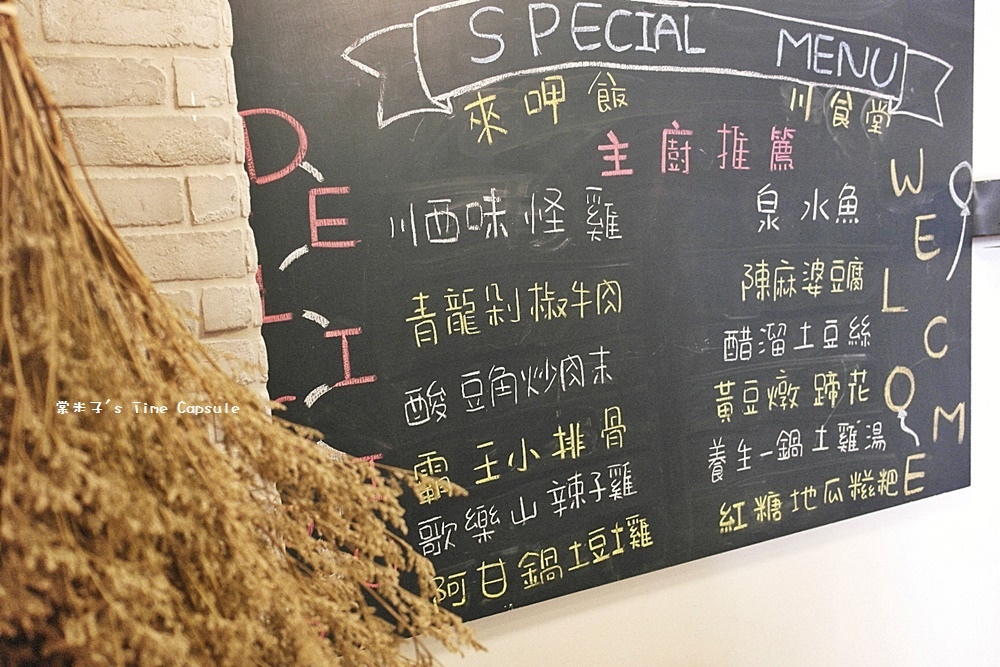 SPECIAL MENU
來呷飯 川食堂
主廚推薦
川西味怪雞
青龍剁椒牛肉
酸豆角炒肉末
霸王小排骨
歌樂山辣子雞
阿甘鍋土豆雞
泉水魚
陳麻婆豆腐
醋溜土豆絲
黃豆燉蹄花
養生一鍋土雞湯
紅糖地瓜糍粑
WELCOME
棠米子's Time Capsule